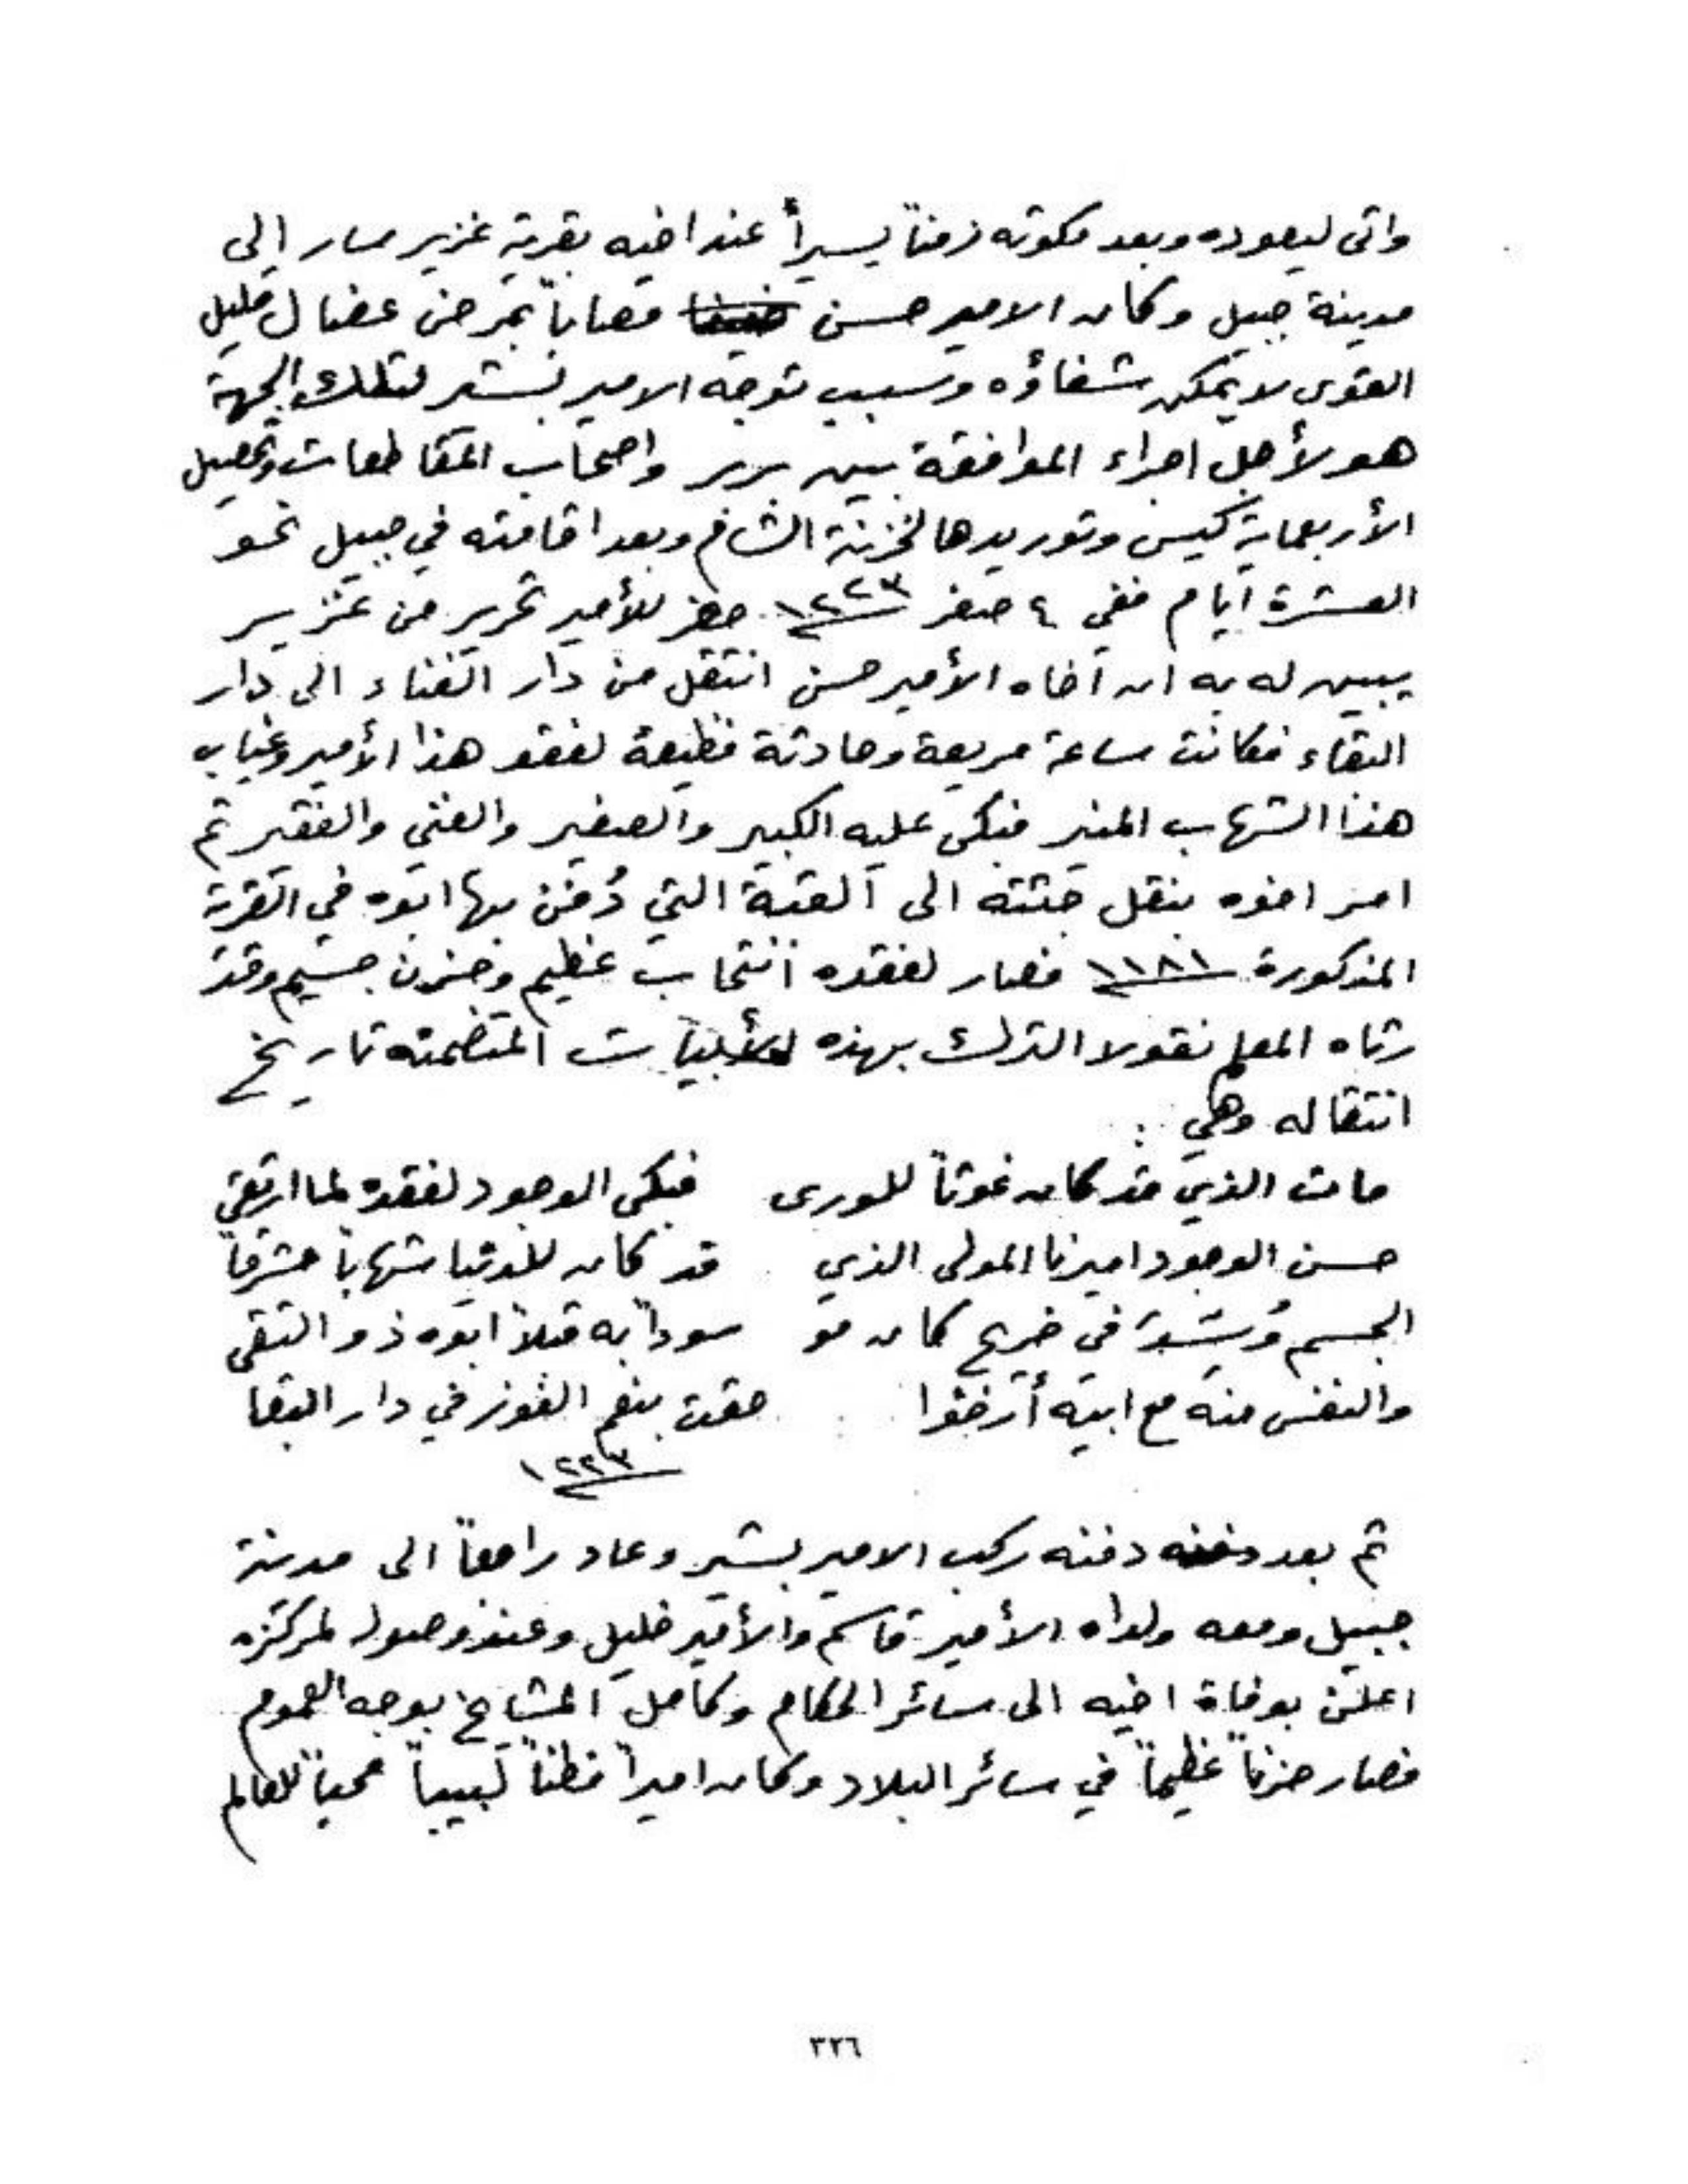 واتى ليعوده وبعد مكوثه زمناً يسيراً عند اخيه بقرية غزير سار إلى
مدينة جبيل وكان الامير حسن مصاباً بمرض عضال قليل
القوى لا يمكن شفاؤه وسبب توجه الامير بشير لتلك الجهة
هو لأجل اجراء الموافقة بين بربر واصحاب المقاطعات وتحصيل
الأربعماية كيس وتوريدها لخزينة الشام وبعد اقامته في جبيل نحو
العشرة ايام ففي ٤ صفر ١٢٢٣ حضر للأمير تحرير من غزير
يبين له به ان أخاه الأمير حسن انتقل من دار الفناء الى دار
البقاء فكانت ساعة مريعة وحادثة فظيعة لفقد هذا الأمير وغياب
هذا الشهاب المنير فبكى عليه الكبير والصغير والغني والفقير ثم
امر اخوه بنقل جثته الى القبة التي دُفن بها ابوه في القرية
المذكورة ١١٨١ فصار لفقده انتحاب عظيم وحزن جسيم وقد
رثاه المعلم نقولا الترك بهذه الأبيات المتضمنه تاريخ
انتقاله وهي :
مات الذي قد كان غوثاً للورى فبكى الوجود لفقده لما ارتقى
حسن الوجود اميرنا المولى الذي قد كان للدنيا شهاباً مشرقاً
الجسم في ضريح كان مو سوداً به قبلاً ابوه ذو التقى
والنفس منه مع ابيه أرخوا حقت بنعم الفوز في دار البقا
١٢٢٣
ثم بعد دفنه ركب الامير بشير وعاد راجعاً الى مدينة
جبيل ومعه ولداه الأمير قاسم والأمير خليل وعند وصوله لمركزه
اعلن بوفاة اخيه الى سائر الحكام وكامل المشايخ بوجه العموم
فصار حزناً عظيماً في سائر البلاد وكان اميراً فطناً لبيباً محباً للعالم
٣٢٦